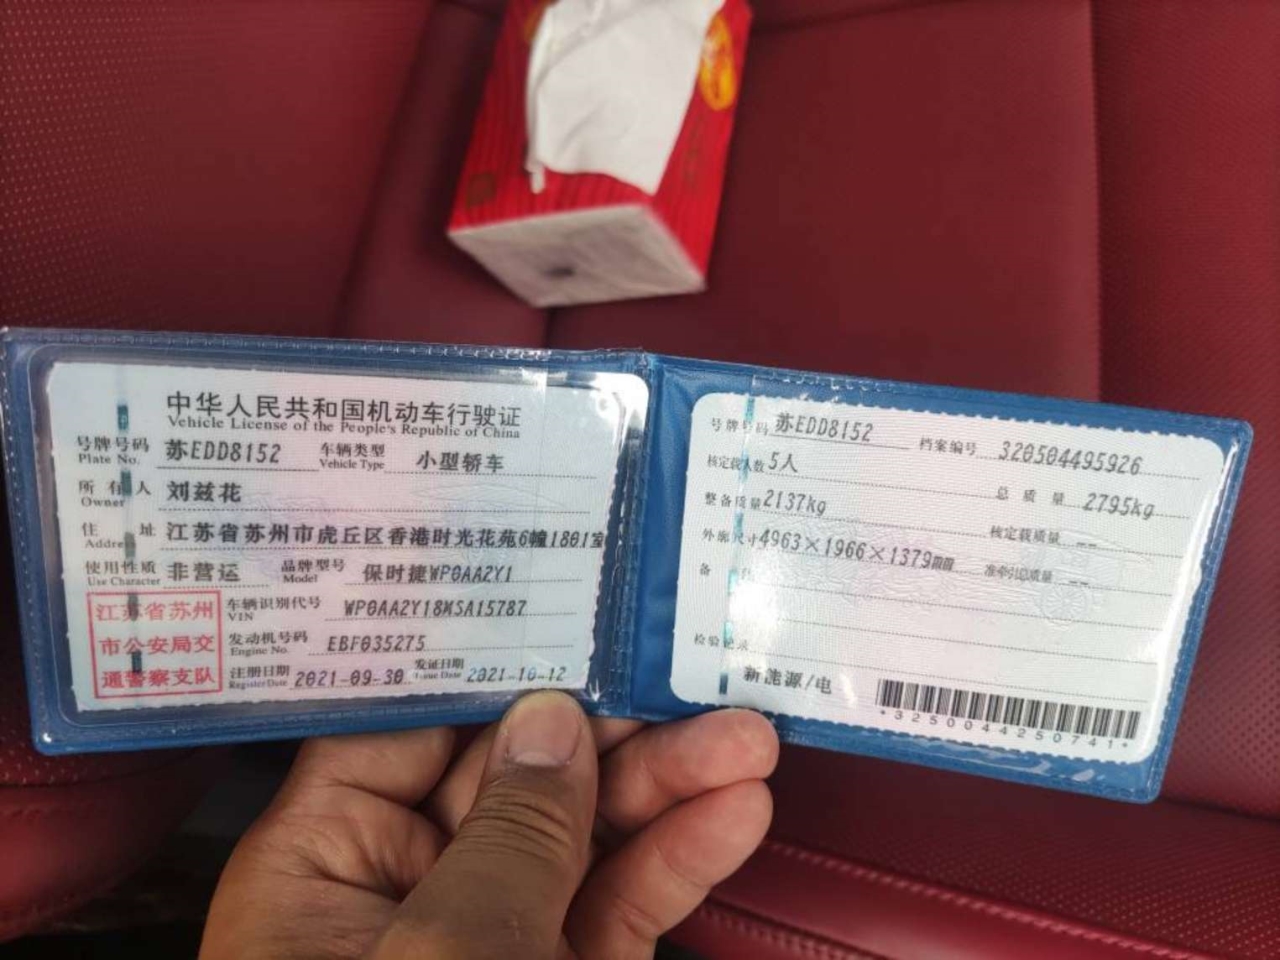 中华人民共和国机动车行驶证
Vehicle License of the People's Republic of China
号牌号码 苏EDD8152 车辆类型 小型轿车
Plate No. Vehicle Type
所有人 刘兹花
Owner
住址 江苏省苏州市虎丘区香港时光花苑6幢1801室
Address
使用性质 非营运 品牌型号 保时捷WP0AA2Y1
Use Character Model
江苏省苏州
市公安局交
通警察支队
车辆识别代号 WP0AA2Y18MSA15787
VIN
发动机号码 EBF035275
Engine No.
注册日期 2021-09-30 发证日期 2021-10-12
Register Date Issue Date
号牌号码 苏EDD8152 档案编号 320504495926
核定载人数 5人 总质量 2795kg
整备质量 2137kg 核定载质量 --
外廓尺寸 4963×1966×1379mm 准牵引总质量 --
备注
检验记录
新能源/电
*3250044250741*